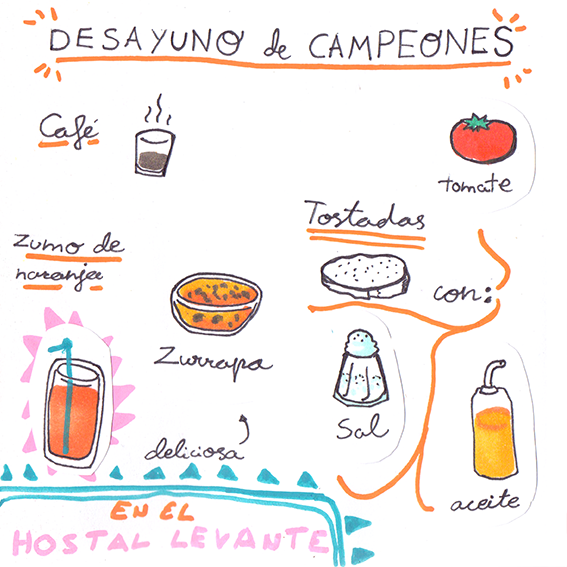 DESAYUNO de CAMPEONES
Café
tomate
Tostadas
con:
Zumo de
naranja
Zurrapa
deliciosa
Sal
aceite
EN EL
HOSTAL LEVANTE